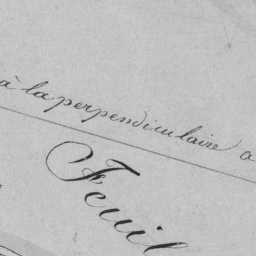 à la perpendiculaire a
Feuil